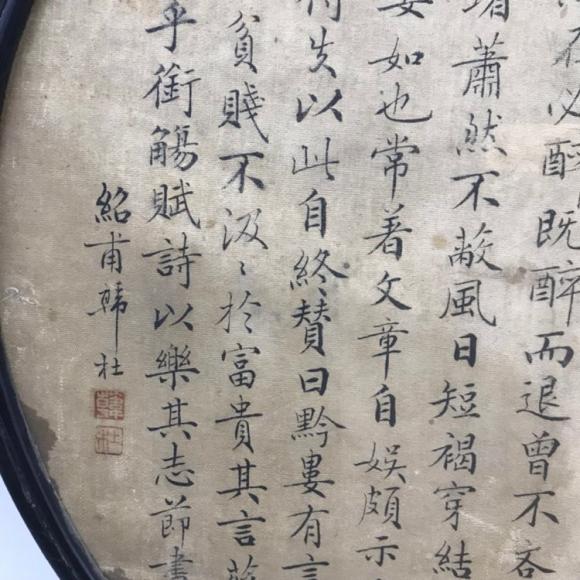 在必醉既醉而退曾不吝
堵蕭然不蔽風日短褐穿結
晏如也常著文章自娛頗示
失以此自終贊曰黔婁有言
貧賤不汲〻於富貴其言茲
乎銜觴賦詩以樂其志節書
紹甫韓杜